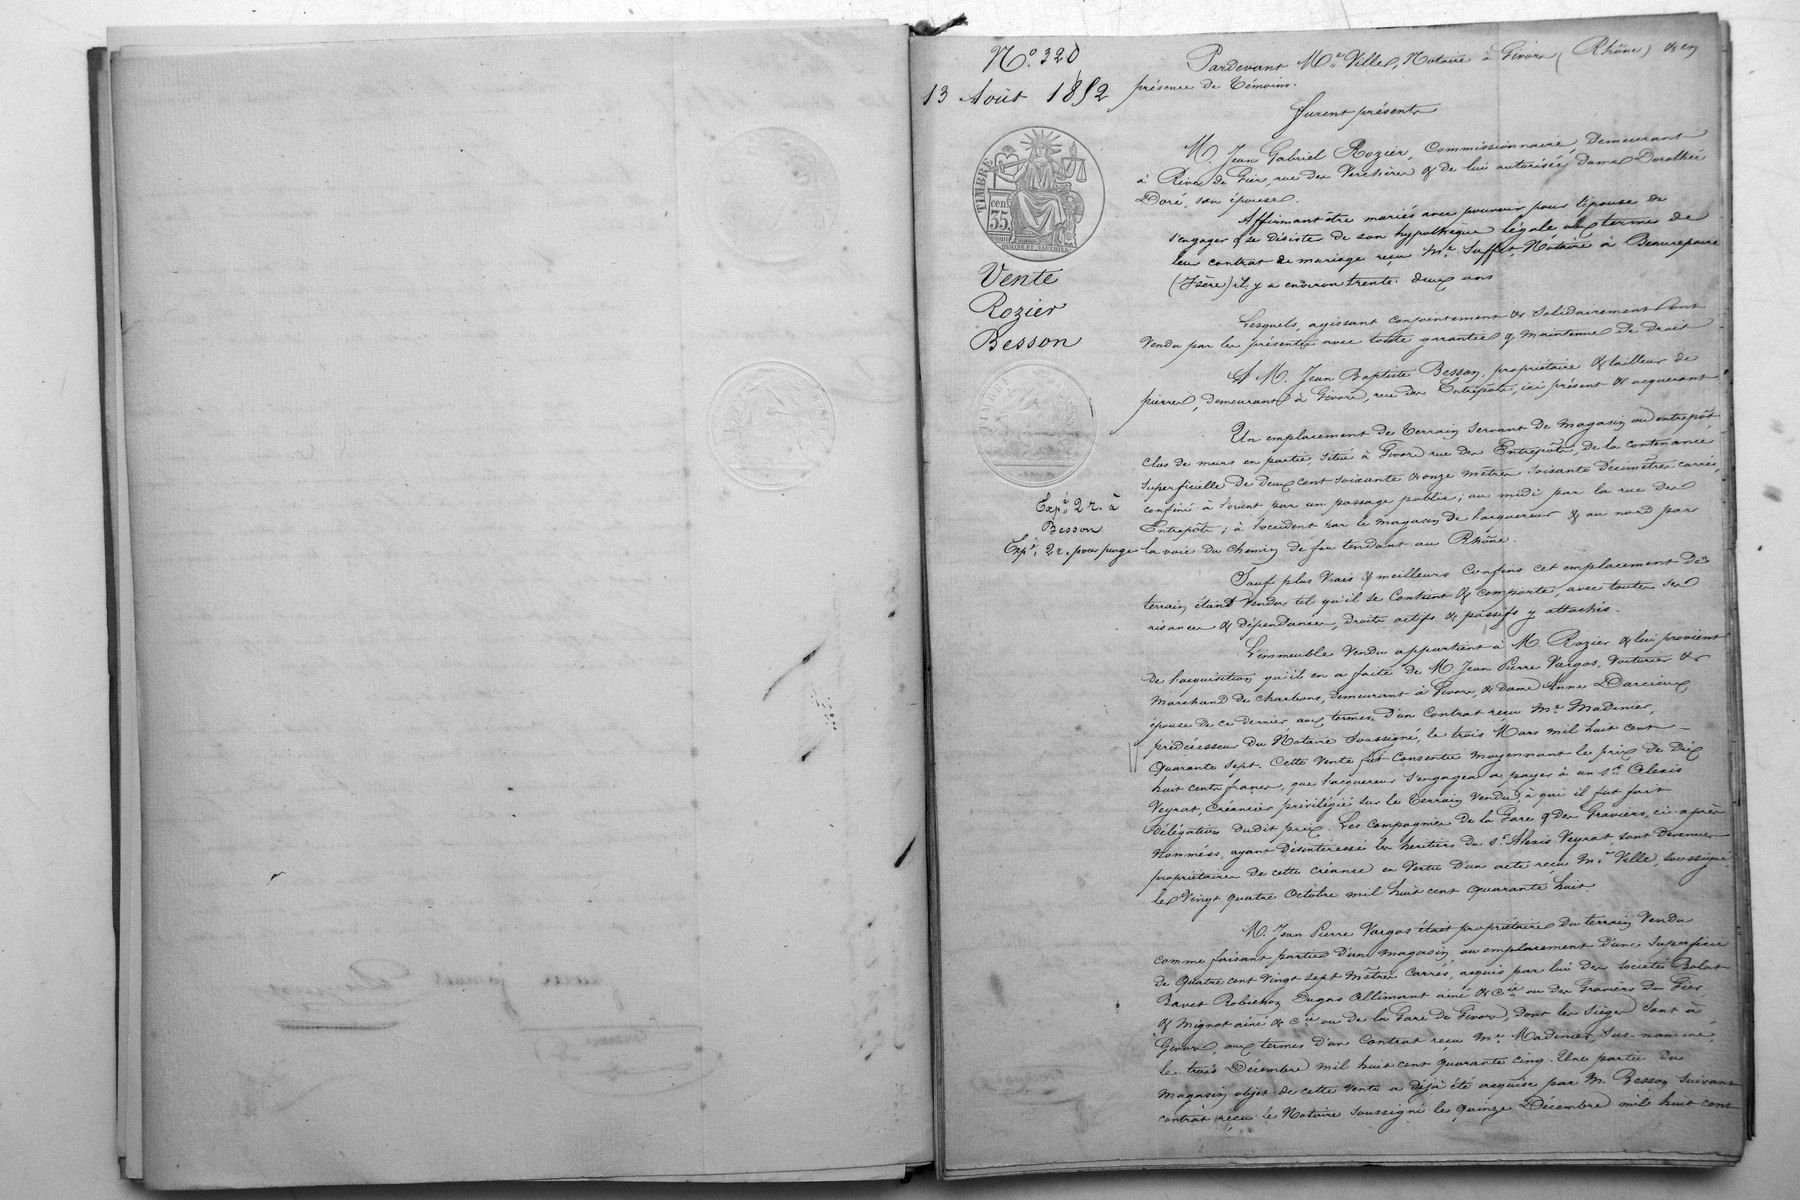 N.º 320
13 Août 1852
TIMBRE
cent
35.
Vente
Rozier
Besson
TIMBRE
Exp.é 2 r. à
Besson
Exp.é 2 r. pour purge
Pardevant M.e Ville, Notaire à Givors (Rhône) & en
présence de Témoins.
Furent présents
M. Jean Gabriel Rozier, Commissionnaire, demeurant
à Rive de Gier, rue des Verchères & de lui autorisée, dame Dorothée
Doré, son épouse.
Affirmant être mariés avec pouvoir pour l'épouse de
s'engager & se désister de son hypothèque légale aux termes de
leur contrat de mariage reçu M.e Suffet, Notaire à Beaurepaire
(Isère) il y a environ trente-deux ans
Lesquels, agissant conjointement & solidairement ont
Vendu par les présentes avec toute garantie & maintenue de droit
A M. Jean Baptiste Besson, propriétaire & tailleur de
pierres, demeurant à Givors, rue des Entrepôts, ici présent & acquérant
Un emplacement de terrain servant de magasin ou entrepôt
clos de murs en partie, situé à Givors rue des Entrepôts, de la contenance
superficielle de deux cent soixante & onze mètres soixante décimètres carrés,
confiné à l'orient par un passage public; au midi par la rue des
Entrepôts; à l'occident par le magasin de l'acquéreur & au nord par
la voie du chemin de fer tendant au Rhône.
Sauf plus vrais & meilleurs confins cet emplacement de
terrain étant vendu tel qu'il se contient & comporte, avec toutes ses
aisances & dépendances, droits actifs & passifs y attachés.
L'immeuble vendu appartient à M. Rozier & lui provient
de l'acquisition qu'il en a faite de M. Jean Pierre Vargas, Voiturier &
Marchand de charbons, demeurant à Givors, & dame Anne Darcieux
épouse de ce dernier aux termes d'un contrat reçu M.e Madinier,
prédécesseur du Notaire soussigné, le trois Mars mil huit cent
quarante sept. Cette vente fut consentie moyennant le prix de dix
huit cents francs, que l'acquéreur s'engagea à payer à un s.r Alexis
Veyrat, créancier privilégié sur le terrain vendu, à qui il fut fait
délégation dudit prix. Les compagnies de la Gare & des Graviers, ci-après
nommées, ayant désintéressé les héritiers du s.r Alexis Veyrat sont devenues
propriétaires de cette créance en vertu d'un acte reçu M.e Ville, soussigné
le vingt quatre Octobre mil huit cent quarante huit
M. Jean Pierre Vargas était propriétaire du terrain vendu
comme faisant partie d'un magasin, ou emplacement d'une superficie
de quatre cent vingt sept mètres carrés, acquis par lui des sociétés Bolot
Bavet Robichon Dugas Allimant ainé & C.ie ou des Graviers du Gier
& Mignot ainé & C.ie ou de la Gare de Givors, dont les sièges sont à
Givors, aux termes d'un contrat reçu M.e Madinier, sus-nommé,
le trois Décembre mil huit cent quarante cinq. Une partie du
magasin objet de cette vente a déjà été acquise par M. Besson suivant
contrat reçu le Notaire soussigné le quinze Décembre mil huit cent